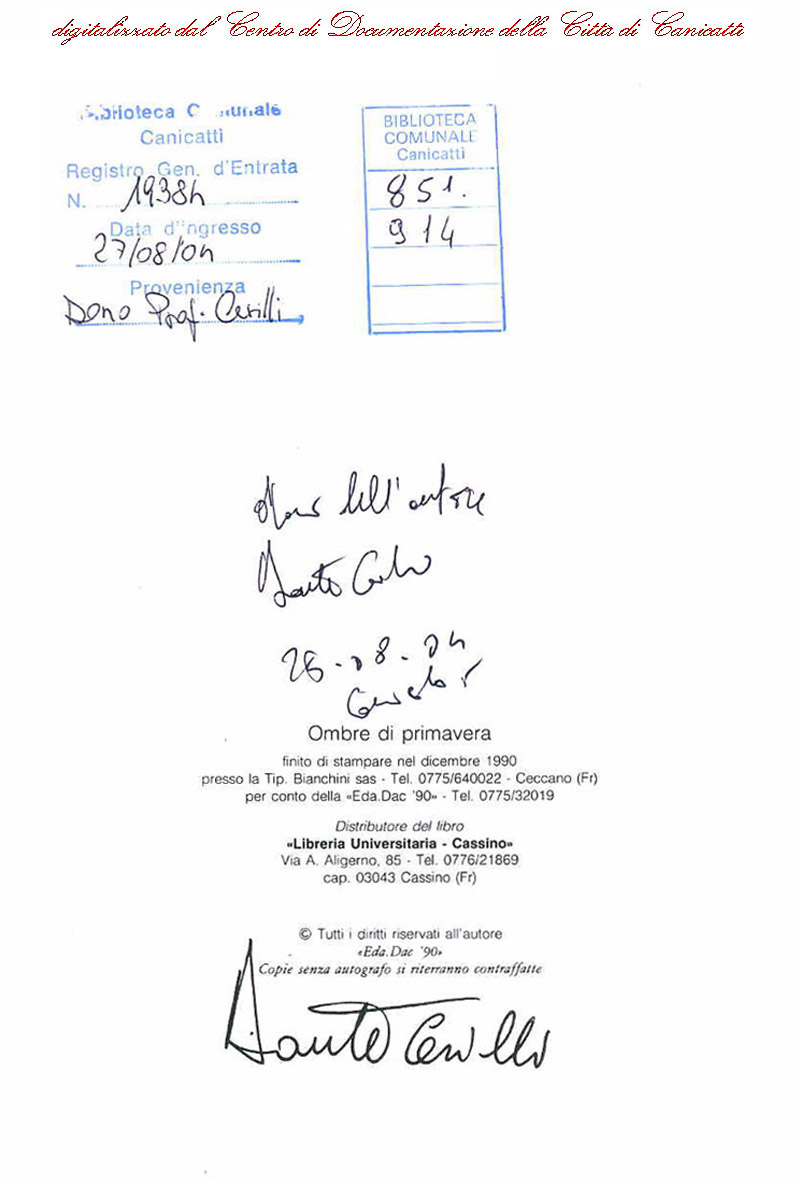 digitalizzato dal Centro di Documentazione della Città di Canicattì
Biblioteca Comunale
Canicattì
Registro Gen. d'Entrata
N. 19384
Data d'ingresso
27/08/04
Provenienza
Dono Prof. Cerilli
BIBLIOTECA
COMUNALE
Canicattì
851.
914
dell'autore
Dante Cerilli
26.08.04
Ombre di primavera
finito di stampare nel dicembre 1990
presso la Tip. Bianchini sas - Tel. 0775/640022 - Ceccano (Fr)
per conto della «Eda.Dac '90» - Tel. 0775/32019
Distributore del libro
«Libreria Universitaria - Cassino»
Via A. Aligerno, 85 - Tel. 0776/21869
cap. 03043 Cassino (Fr)
© Tutti i diritti riservati all'autore
«Eda.Dac '90»
Copie senza autografo si riterranno contraffatte
Dante Cerilli